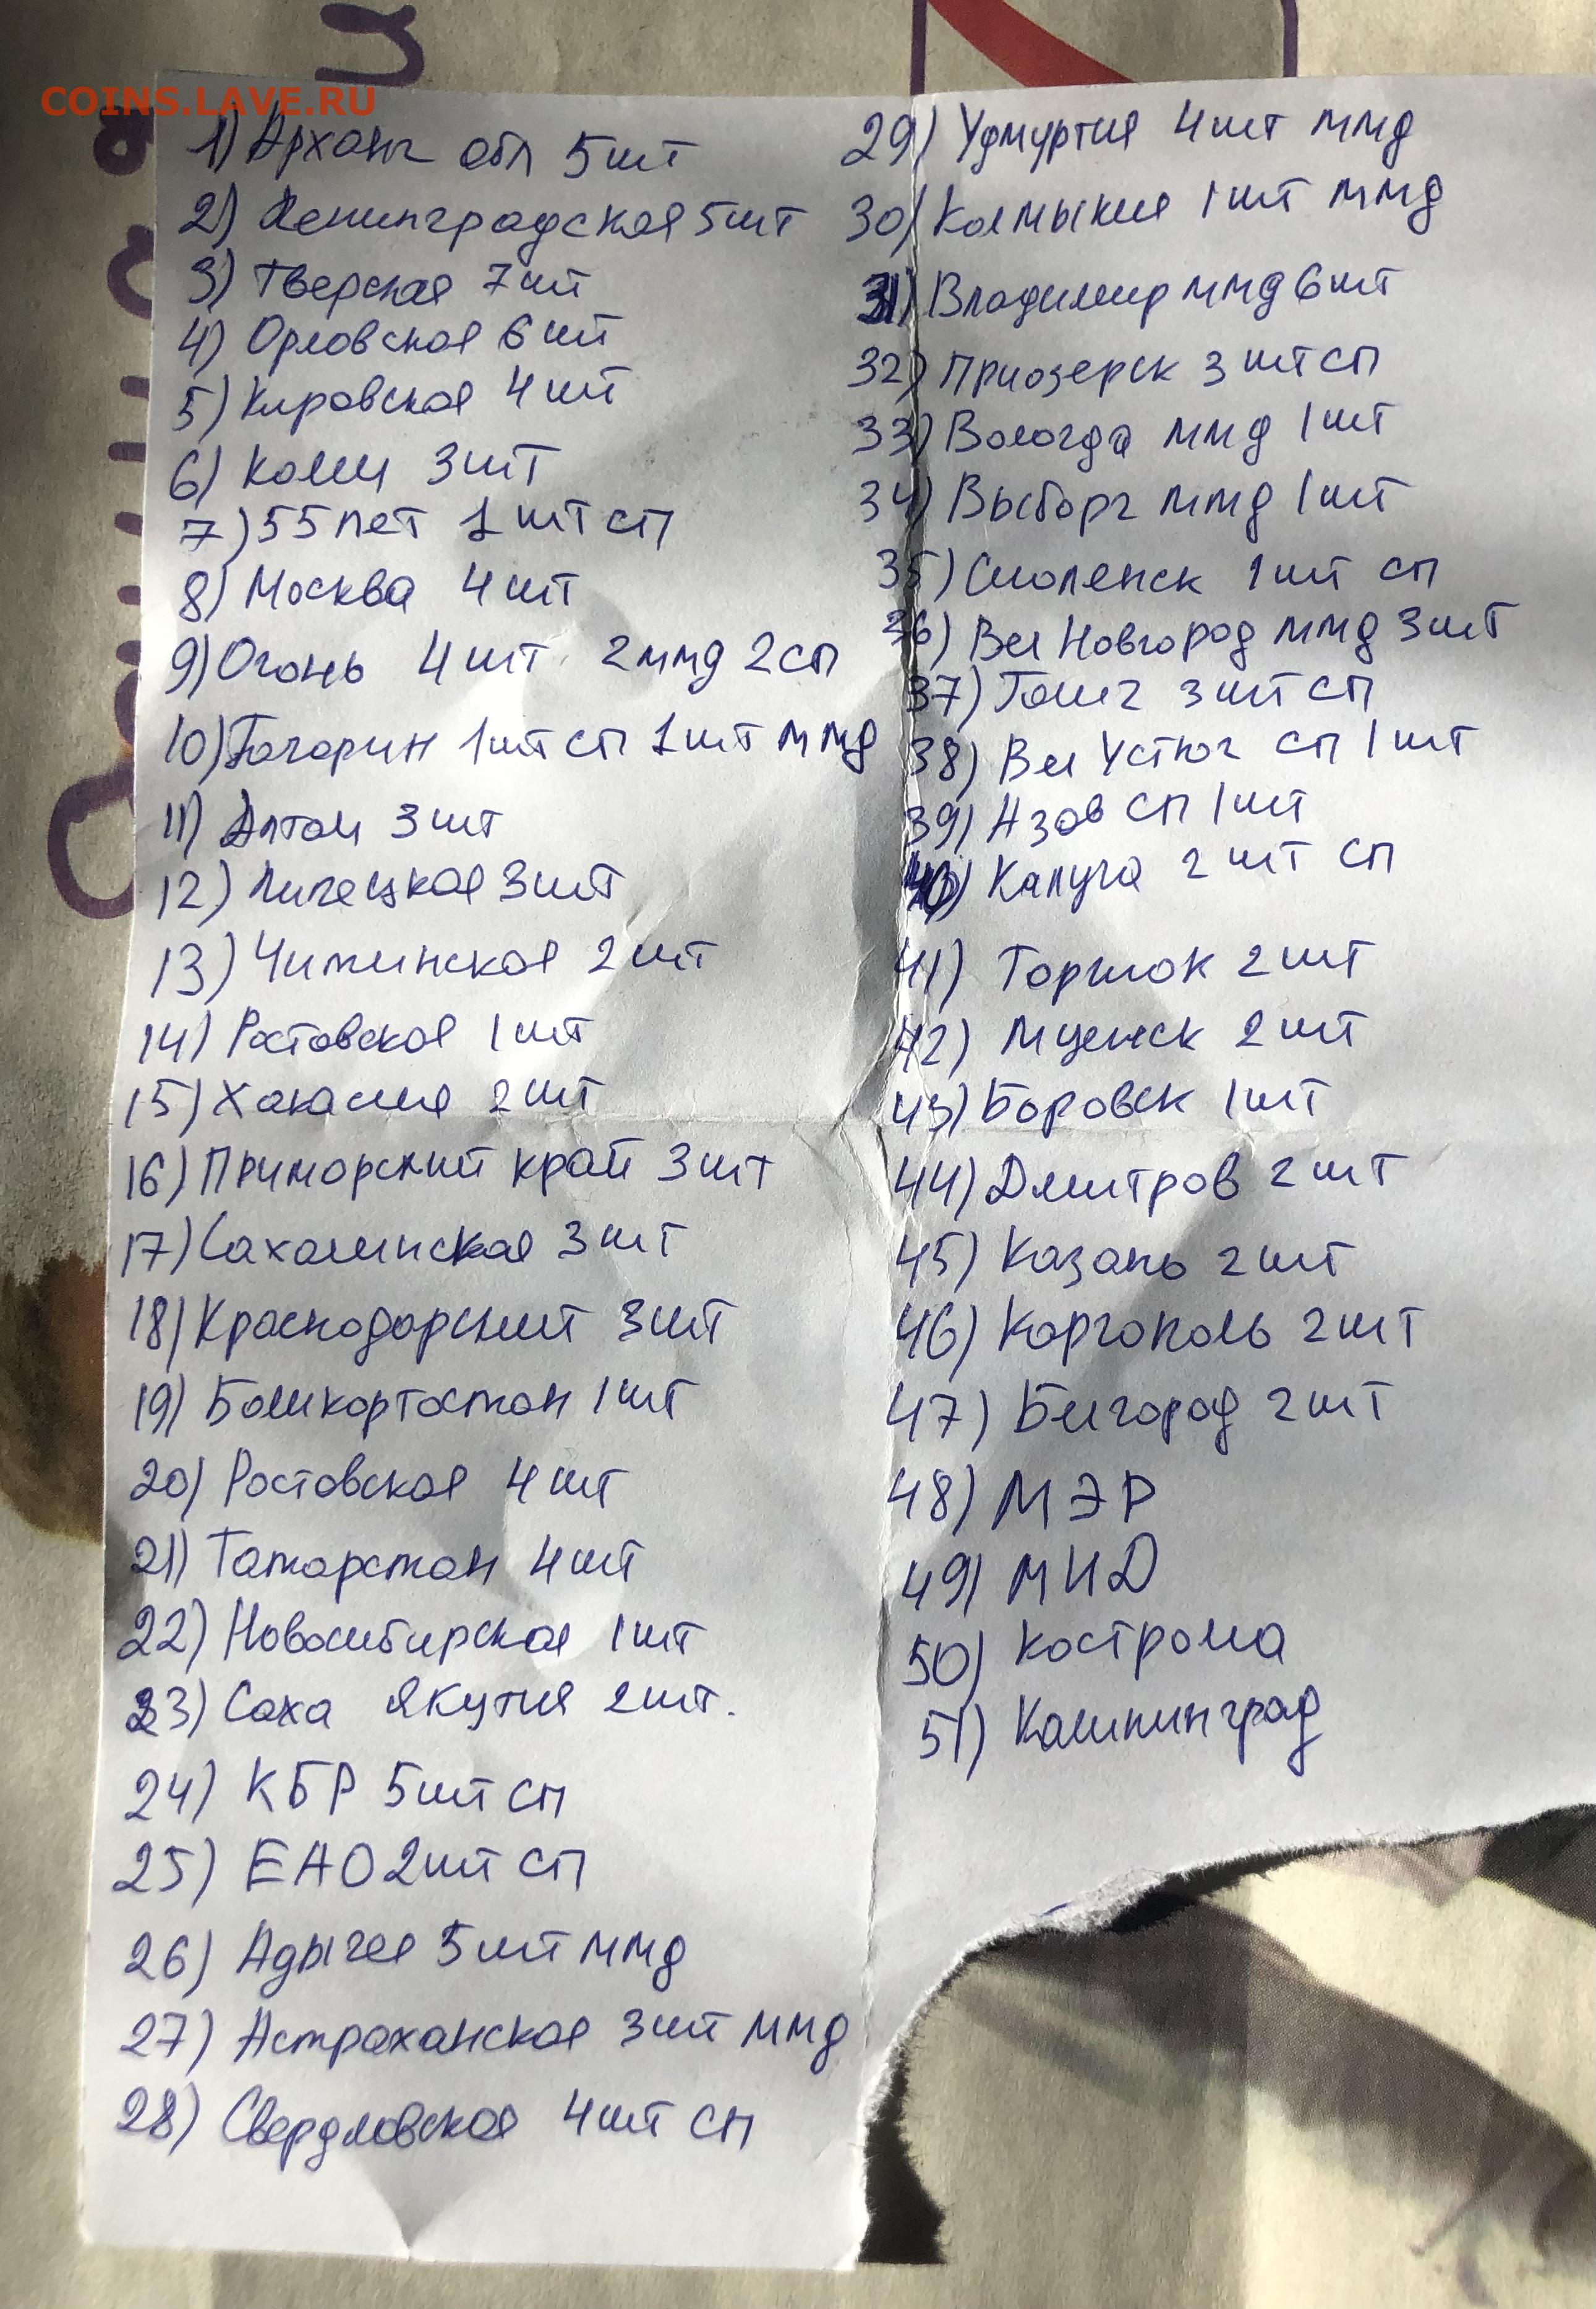 COINS.LAVE.RU
1) Арханг обл 5шт
2) Ленинградская 5шт
3) Тверская 7шт
4) Орловская 6шт
5) Кировская 4шт
6) Коми 3шт
7) 55 лет 1шт сп
8) Москва 4шт
9) Огонь 4шт 2ммд 2сп
10) Гагарин 1шт сп 1шт ммд
11) Алтай 3шт
12) Липецкая 3шт
13) Читинская 2шт
14) Ростовская 1шт
15) Хакасия 2шт
16) Приморский край 3шт
17) Сахалинская 3шт
18) Краснодарский 3шт
19) Башкортостан 1шт
20) Ростовская 4шт
21) Татарстан 4шт
22) Новосибирская 1шт
23) Саха Якутия 2шт.
24) КБР 5шт сп
25) ЕАО 2шт сп
26) Адыгея 5шт ммд
27) Астраханская 3шт ммд
28) Свердловская 4шт сп
29) Удмуртия 4шт ммд
30) Калмыкия 1шт ммд
31) Владимир ммд 6шт
32) Приозерск 3шт сп
33) Вологда ммд 1шт
34) Выборг ммд 1шт
35) Смоленск 1шт сп
36) Вел Новгород ммд 3шт
37) Галич 3шт сп
38) Вел Устюг сп 1шт
39) Азов сп 1шт
40) Калуга 2шт сп
41) Торжок 2шт
42) Мценск 2шт
43) Боровск 1шт
44) Дмитров 2шт
45) Казань 2шт
46) Каргополь 2шт
47) Белгород 2шт
48) МЭР
49) МИД
50) Кострома
51) Калининград